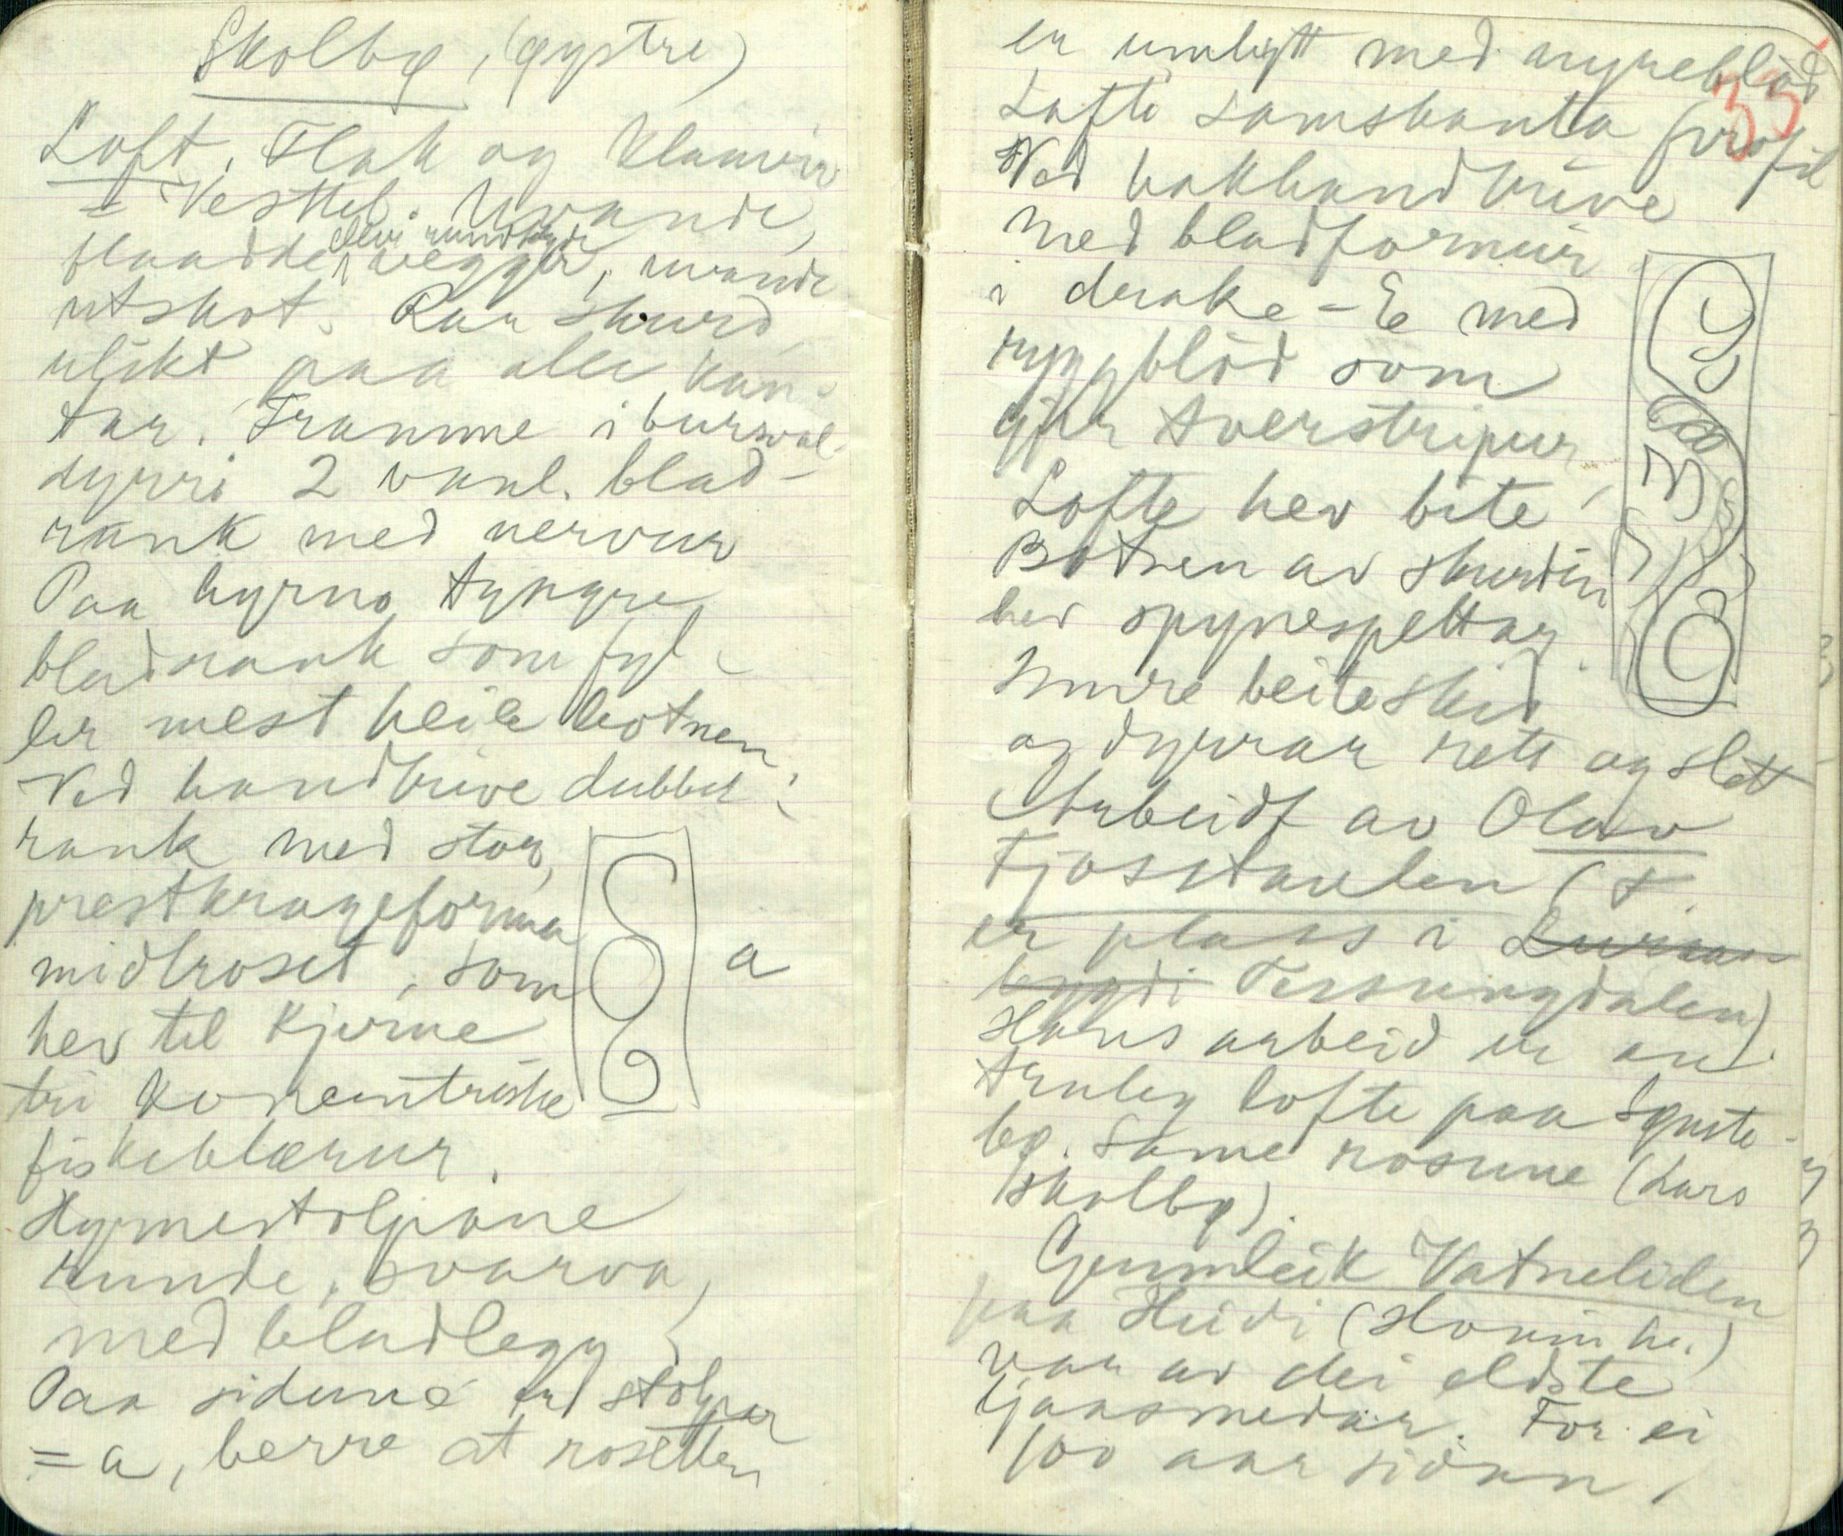 Skolbø, (øystre)
Loft. Flak og klamvir
= Vesttel. Uvande,
flaadde, vegger, uvande
utskot. Rar skurd
ulikt paa alle kan-
tar. Framme i bursval-
dyrri 2 vanl. blad-
rank med nervur
Paa hyrno tyngre
bladrank som fyl-
ler mest heile botnen
Ved handtrive dubbel
rank med stor,
prestkrageforma
midtroset, som
hev til kjerne
tri koncentriske
fiskeblærur.
a
Hyrnestolpane
runde, svarva,
med bladlegg
Paa sidune er stolpar
= a, berre at rosetten
33
er umlagt med nyreblad
Lofte samskanta profil
Ved bakhandtrive
med bladformur
i drake - E med
ryggblad som
gjer tverstripur
Lofte hev bite
Botnen av skurdin
hev spynespettar
Inmre beiteskid
og dyrrar rett og slett
Arbeidt av Olav
Tjosstaulen (T.
er plass i Luraas
bygdi Tessungdalen)
Hans arbeid er an
truleg lofte paa Synste-
bø. Same rosune (Lars
Skolbø).
Gunnleik Vatneliden
paa Heidi (Hovin he.)
var av dei eldste
ljaasmedar. For ei
100 aar sidan,